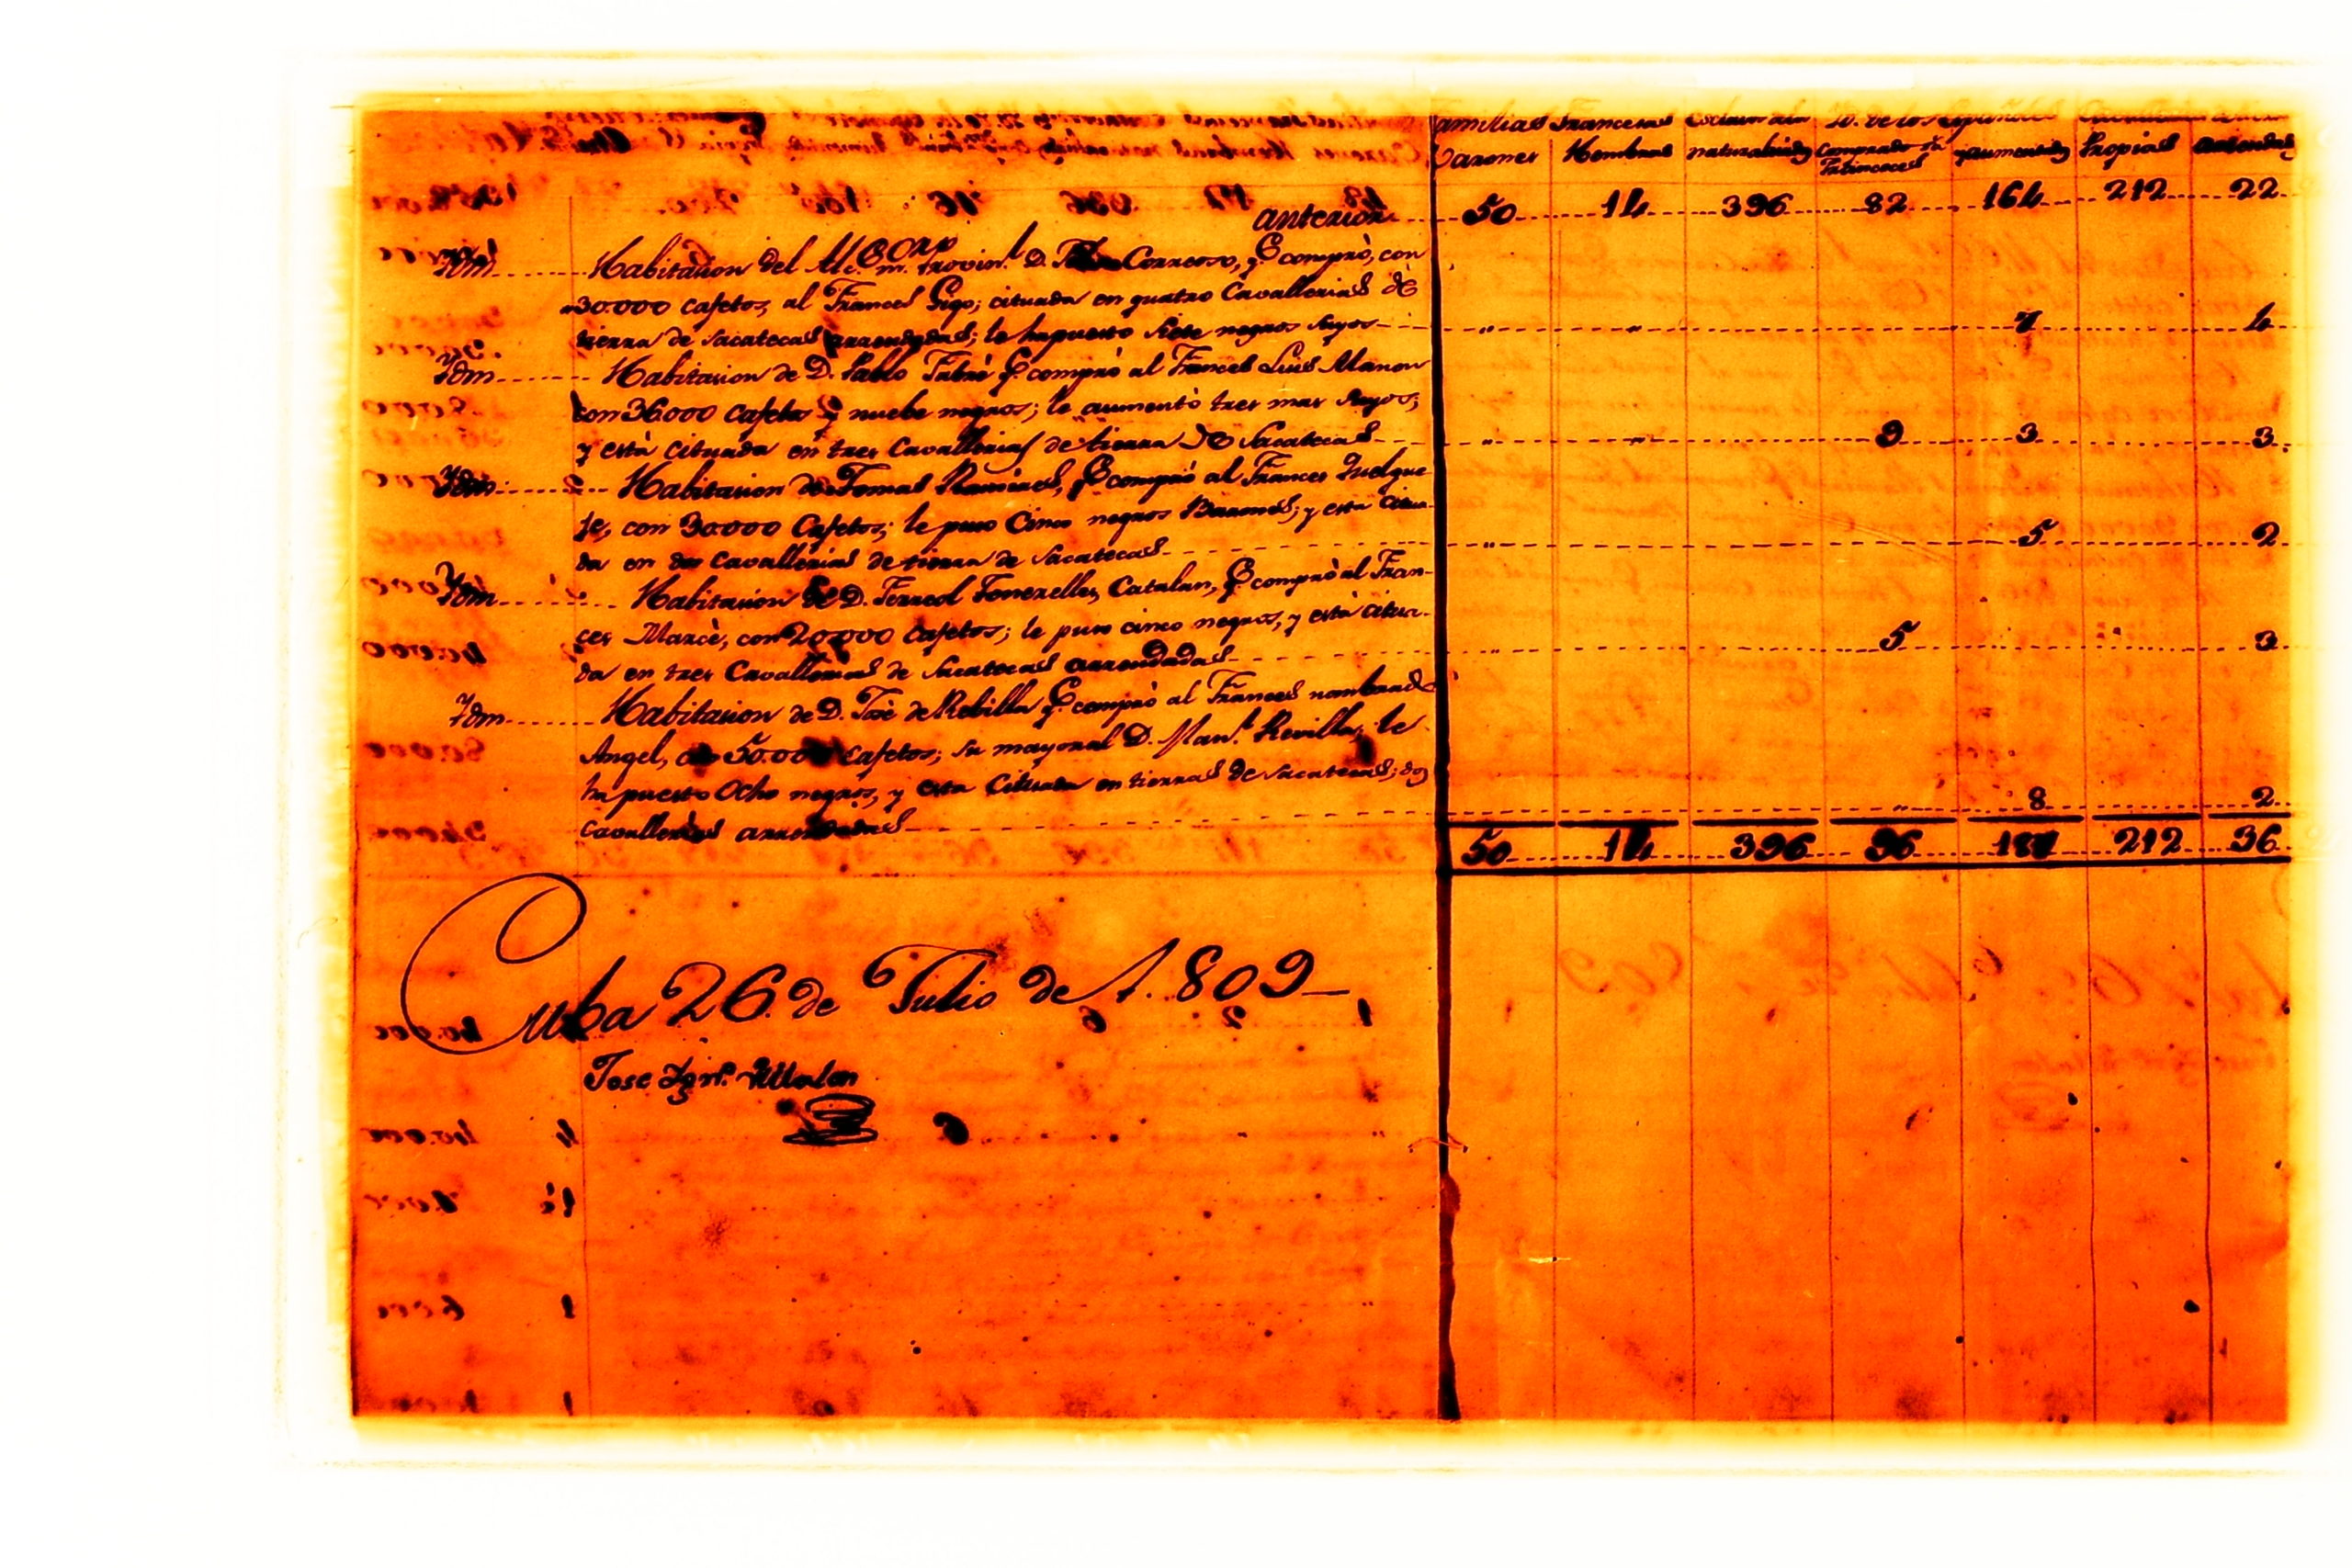 Familias Francesas Esclavos Yd. de los Españoles
Varones Hembras naturalizados Comprados Franceses y aumentados Propias arrendadas
anterior 50 14 396 82 164 212 22
Ydm Habitacion del Alc.e m. Provin.l D. Correoso, q.e comprò, con
30.000 cafetos, al Frances Gigo; cituada en quatro Cavallerias dè
tierra de Sacatecas arrendadas; le ha puesto siete negros suyos 7 4
Ydm Habitacion de D. Pablo Fabrè q.e comprò al Frances Luis Manon
con 36.000 cafetos y nuebe negros; le aumentò tres mas suyos;
y està cituada en tres Cavallerias de tierra de Sacatecas 9 3 3
Ydm Habitacion de Tomas Ramires, q.e comprò al Frances Quelque
Je, con 30.000 Cafetos; le puso Cinco negros Barones; y esta citua-
da en dos Cavallerias de tierra de Sacatecas 5 2
Ydm Habitacion de D. Ferreol Fonerelles, Catalan, q.e comprò al Fran-
ces Marcè, con 20.000 cafetos; le puso cinco negros, y està citua-
da en tres Cavallerias de Sacatecas arrendadas 5 3
Ydm Habitacion de D. Josè de Rebilla q.e comprò al Frances nombrado
Angel, de 50.000 cafetos; su mayoral D. Man.l Revilla, le
ha puesto Ocho negros, y esta Cituada en tierras de Sacatecas; dos
cavallerias arrendadas 8 2
50 14 396 96 187 212 36
Cuba 26 de Julio de 1.809
Jose Ign.o